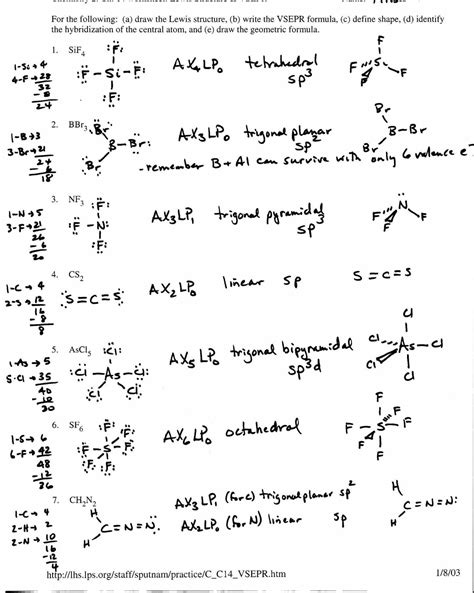 For the following: (a) draw the Lewis structure, (b) write the VSEPR formula, (c) define shape, (d) identify
the hybridization of the central atom, and (e) draw the geometric formula.
1. SiF4
1-Si→4
4-F→28
32
-8
24
:F-Si-F:
F:
:F:
AX4LP0 tetrahedral
sp3
F
F Si F
F
2. BBr3
1-B→3
3-Br→21
24
-6
18
Br
B-Br:
Br
AX3LP0 trigonal planar
sp2
Br
B-Br
Br
-remember B + Al can survive with only 6 valence e-
3. NF3
1-N→5
3-F→21
26
-6
20
:F:
:F-N:
:F:
AX3LP1 trigonal pyramidal
sp3
N
F F F
4. CS2
1-C→4
2-S→12
16
-8
8
S=C=S
AX2LP0 linear sp
S=C=S
5. AsCl5
1-As→5
5-Cl→35
40
-10
30
:Cl:
:Cl-As-Cl:
Cl Cl
AX5LP0 trigonal bipyramidal
sp3d
Cl
Cl As-Cl
Cl
Cl
6. SF6
1-S→6
6-F→42
48
-12
36
:F:
F F
F-S-F
:F:
AX6LP0 octahedral
F
F
F-S-F
F F
7. CH2N2
1-C→4
2-H→2
2-N→10
16
-12
4
H
C=N=N:
H
AX3LP1 (for C) trigonal planar sp2
AX2LP0 (for N) linear sp
H
C=N=N:
H
http://lhs.lps.org/staff/sputnam/practice/C_C14_VSEPR.htm
1/8/03